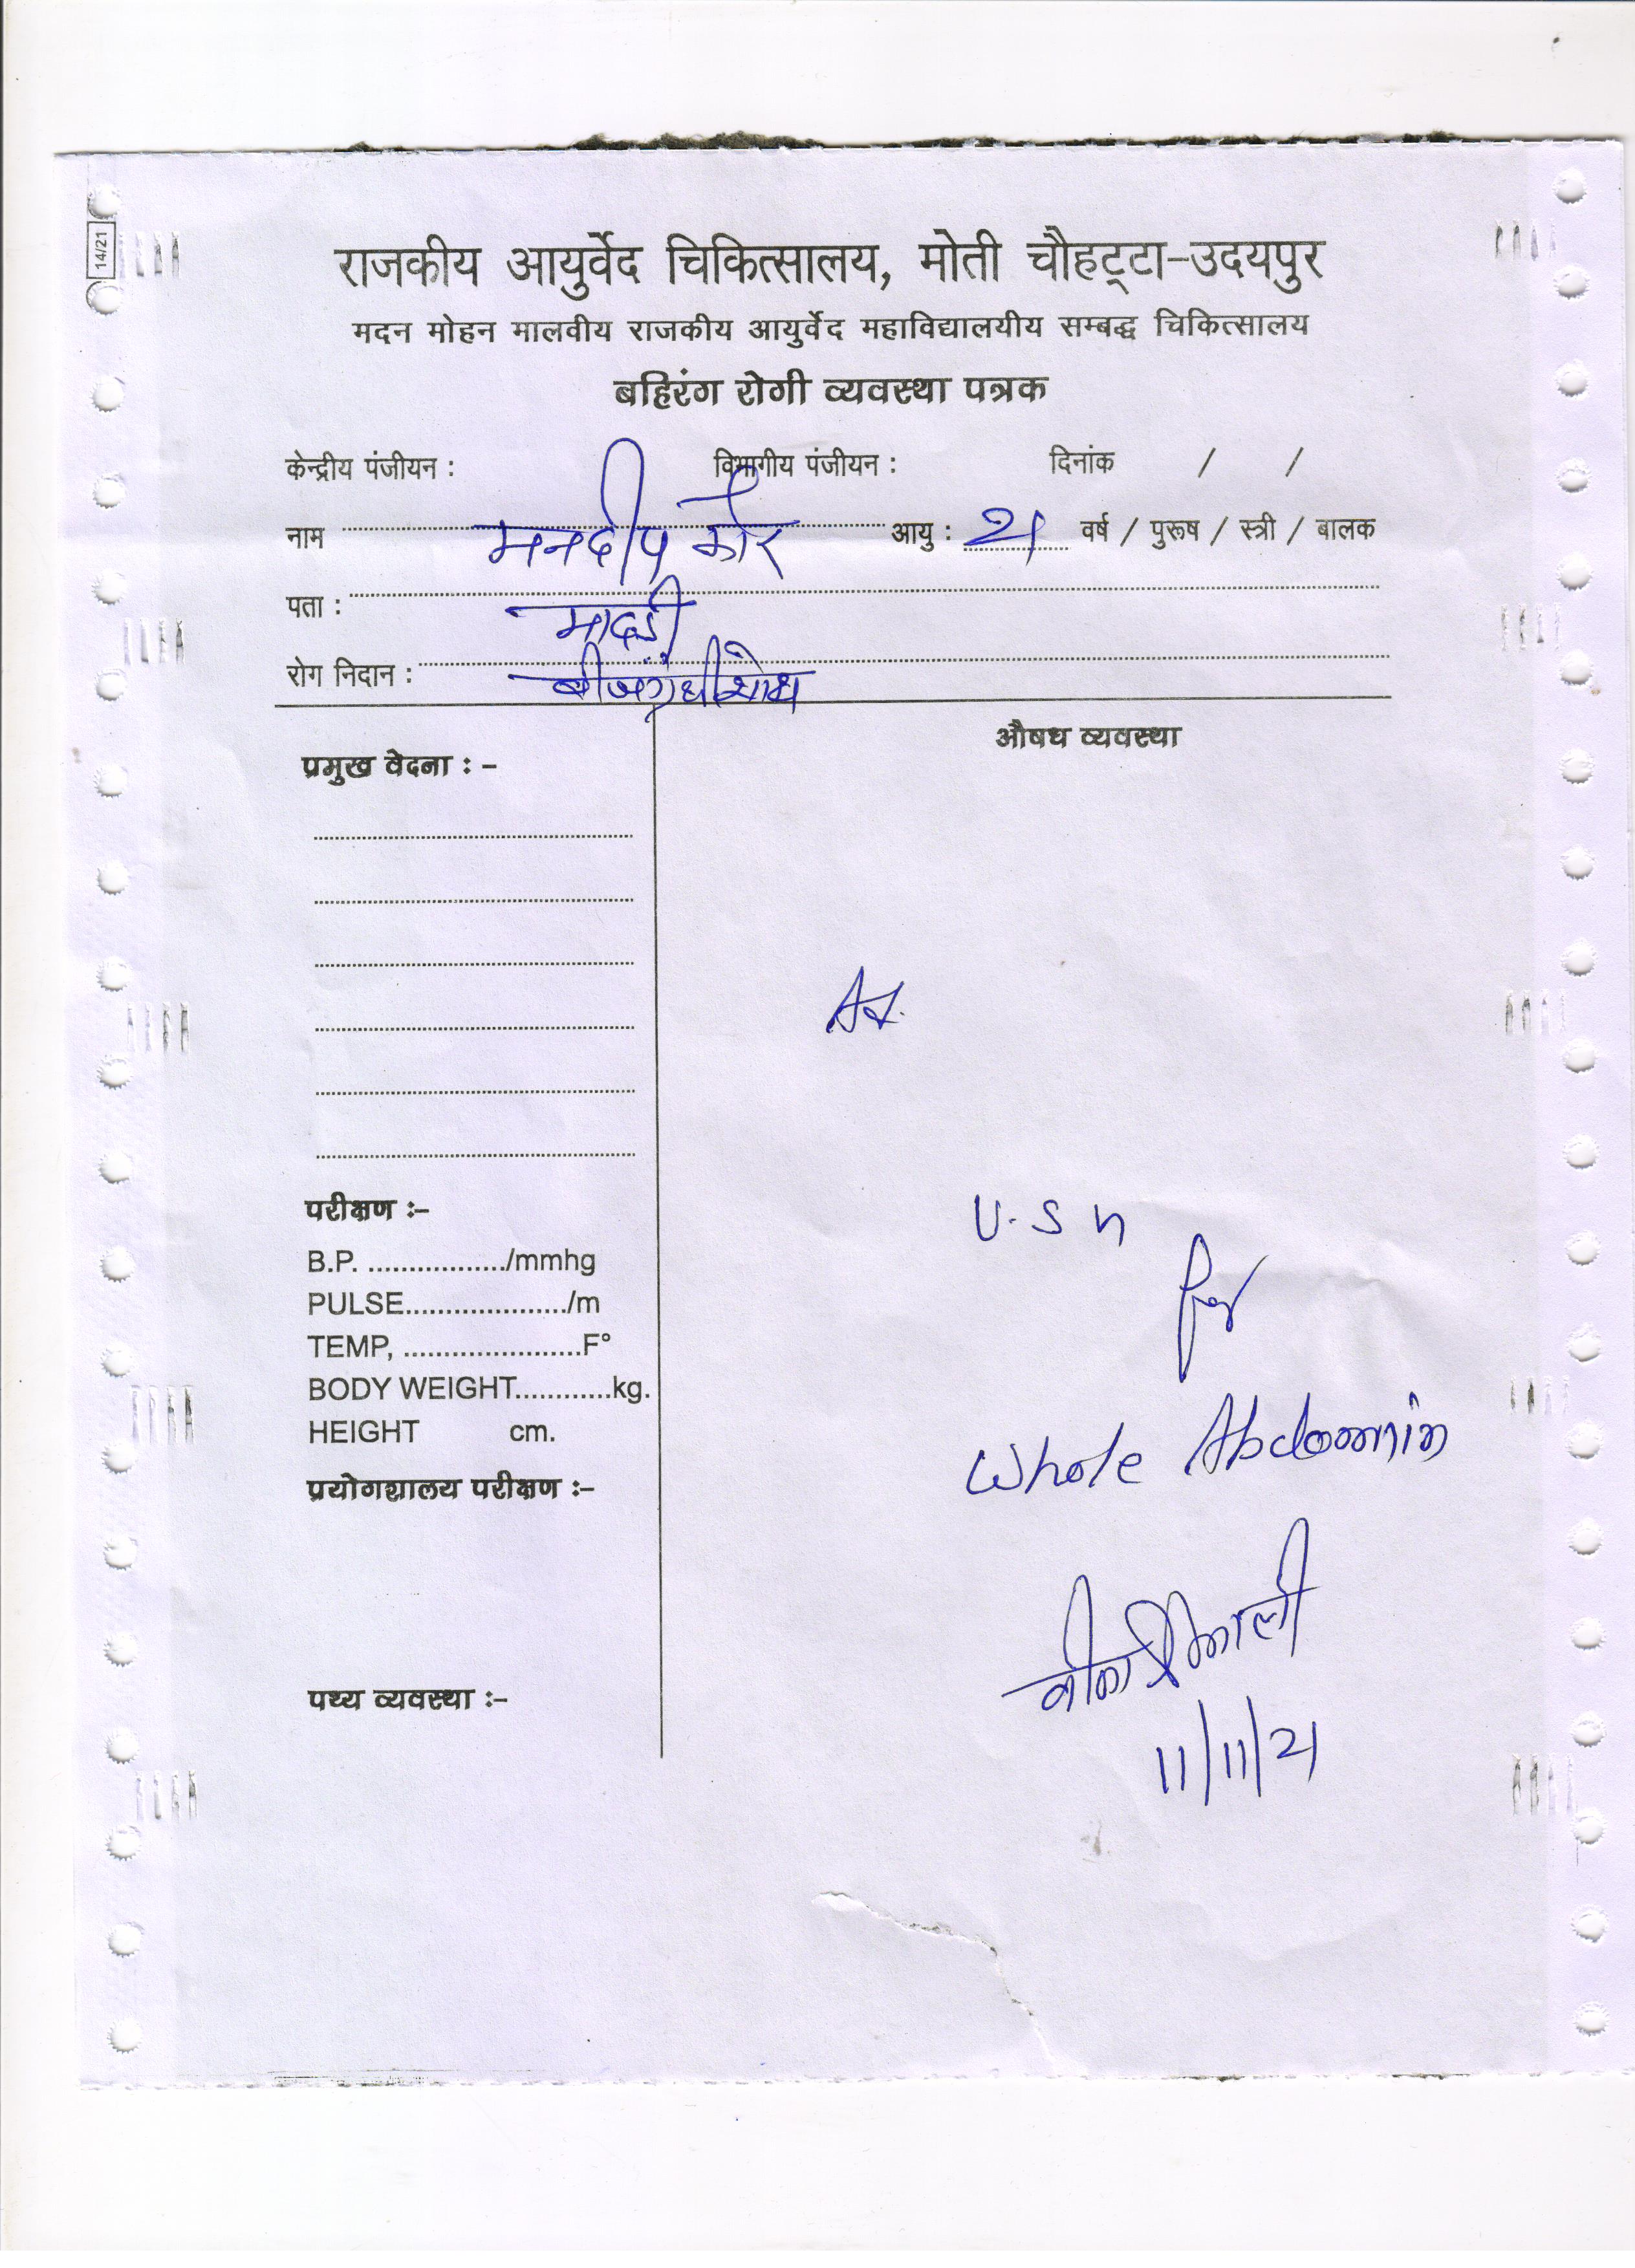 14/21
राजकीय आयुर्वेद चिकित्सालय, मोती चौहट्टा-उदयपुर
मदन मोहन मालवीय राजकीय आयुर्वेद महाविद्यालयीय सम्बद्ध चिकित्सालय
बहिरंग रोगी व्यवस्था पत्रक
केन्द्रीय पंजीयन : विभागीय पंजीयन : दिनांक / /
नाम मनदीप कौर आयु : 21 वर्ष / पुरूष / स्त्री / बालक
पता :
रोग निदान :
औषध व्यवस्था
प्रमुख वेदना : -
परीक्षण :-
B.P. ................./mmhg
PULSE..................../m
TEMP, ......................F°
BODY WEIGHT............kg.
HEIGHT cm.
प्रयोगशालय परीक्षण :-
पथ्य व्यवस्था :-
U.S.G
for
Whole Abdomin
11/11/21